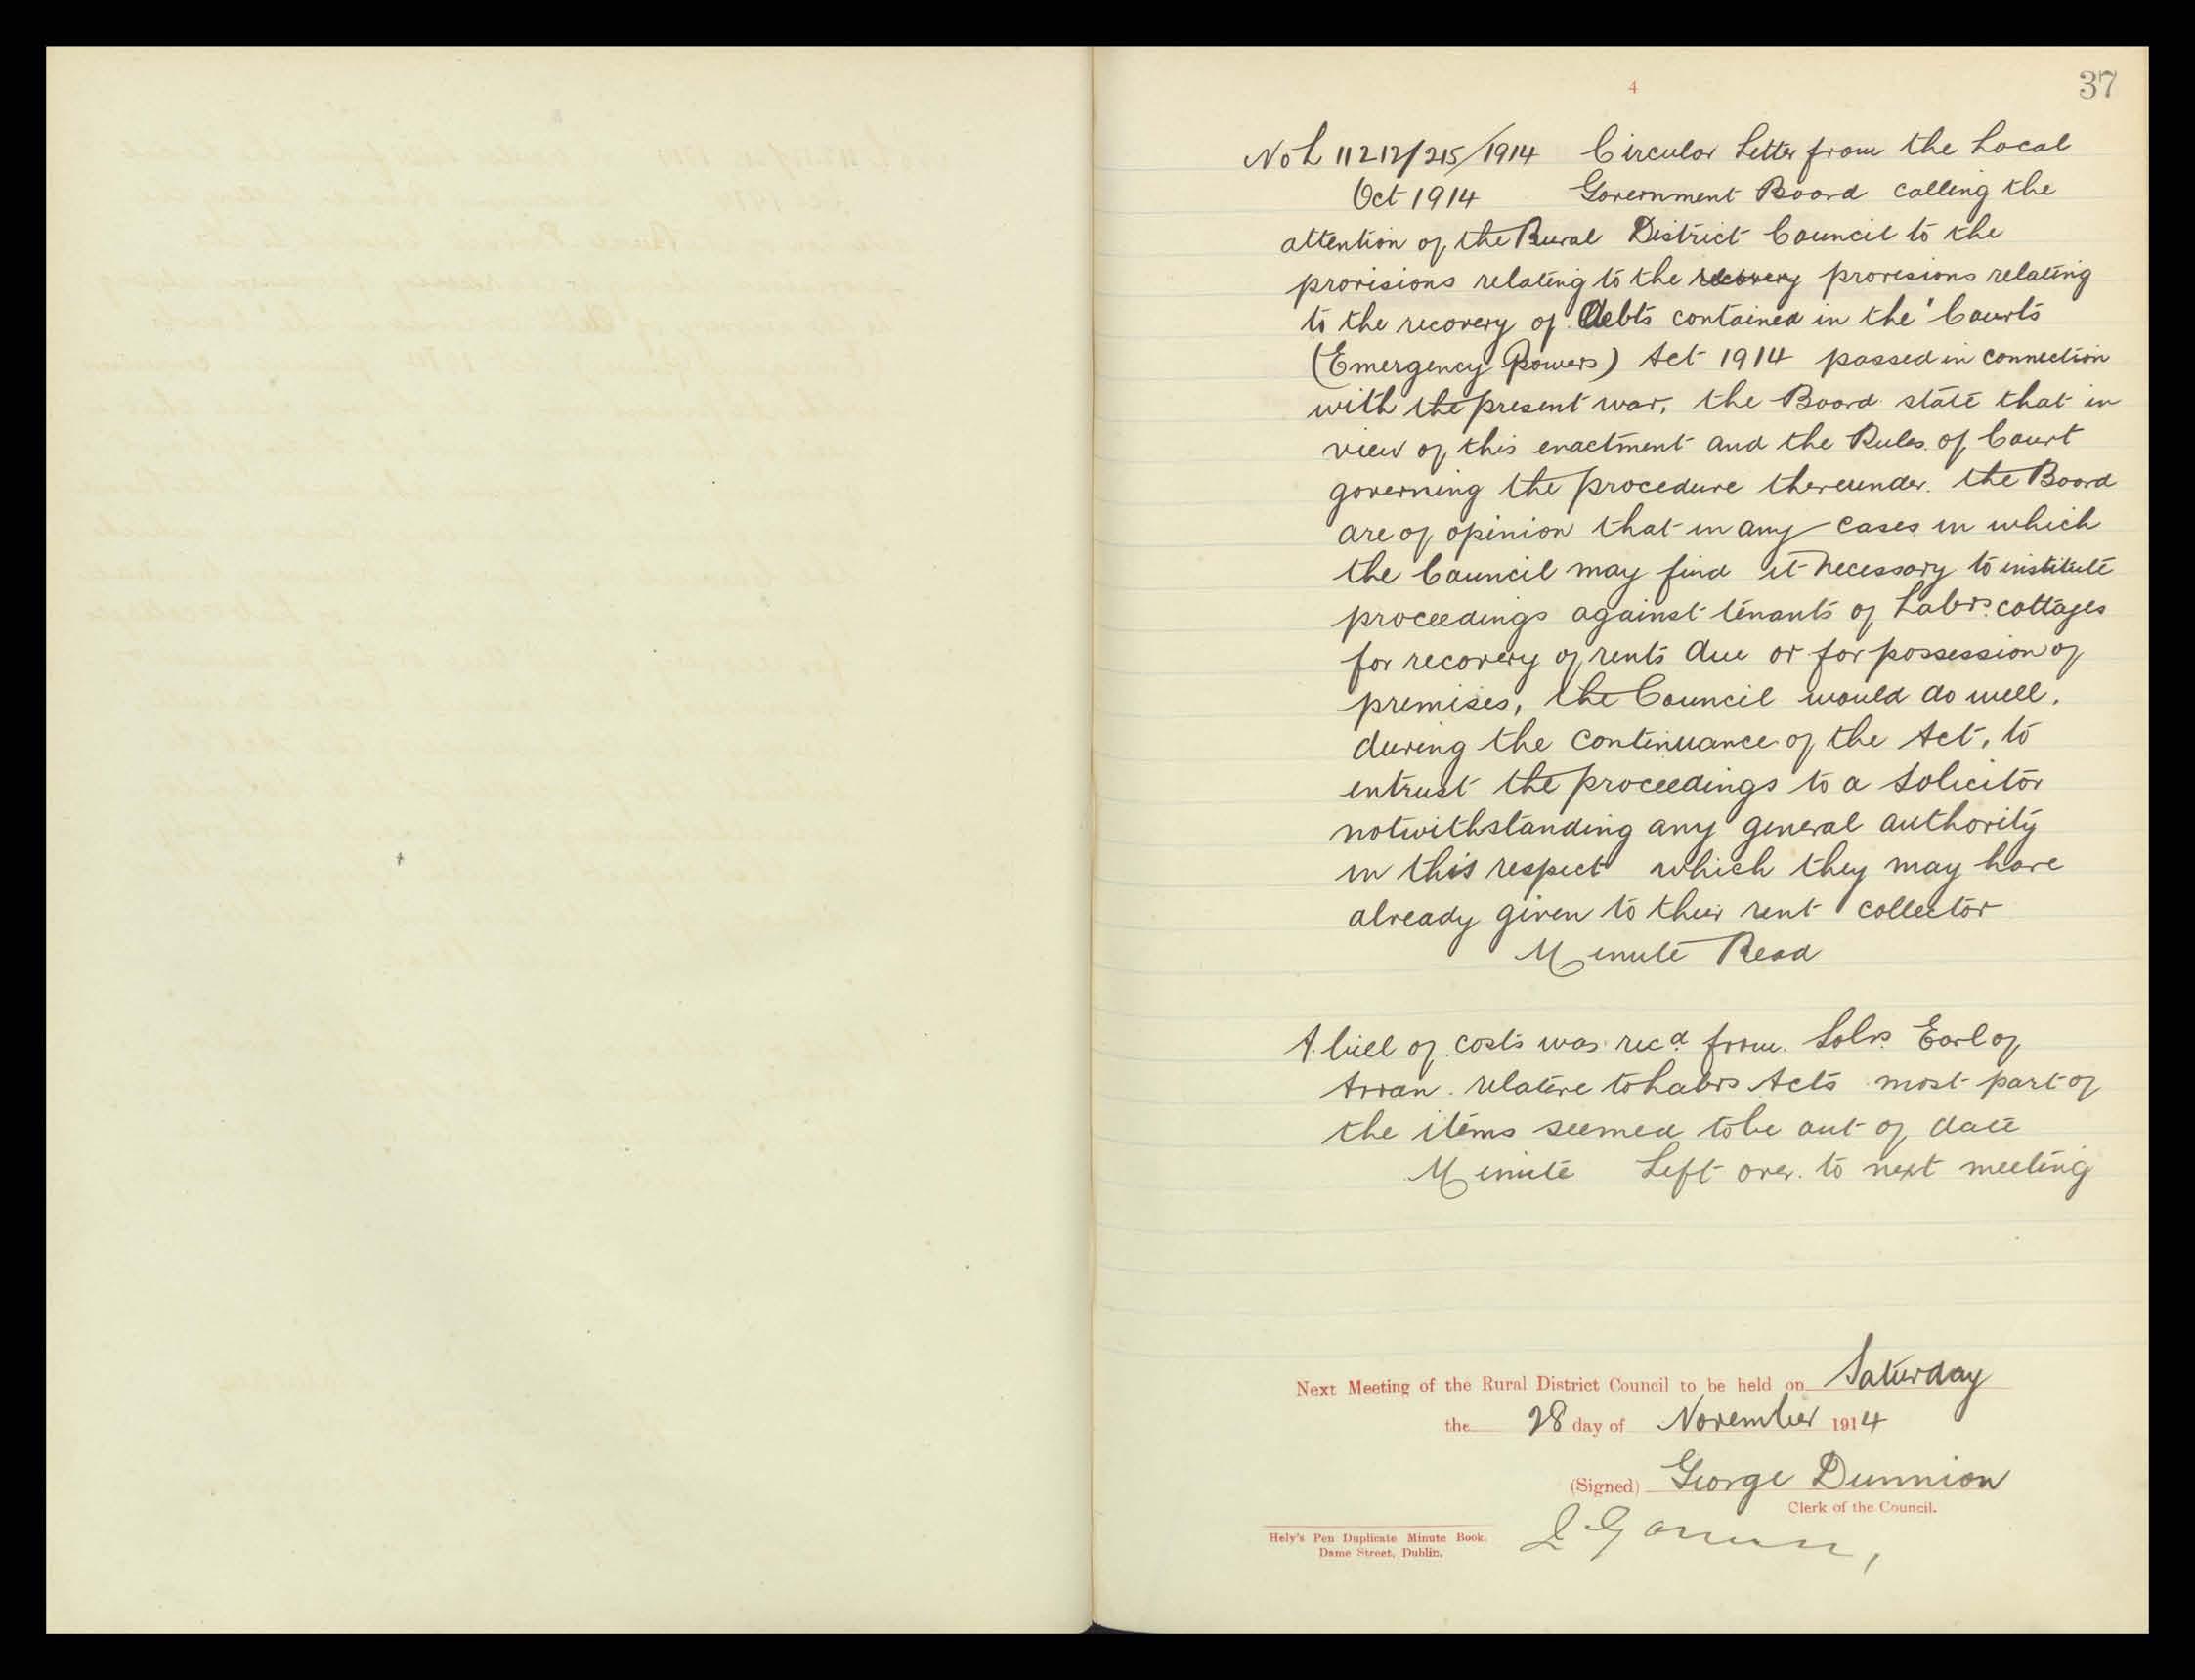 4
37
No L 11212/215/1914 Circular Letter from the Local
Oct 1914 Government Board calling the
attention of the Rural District Council to the
provisions relating to the recovery provisions relating
to the recovery of Debts contained in the 'Courts
(Emergency Powers) Act 1914 passed in connection
with the present war, the Board state that in
view of this enactment and the Rules of Court
governing the procedure thereunder. the Board
are of opinion that in any cases in which
the Council may find it necessary to institute
proceedings against tenants of Labrs. cottages
for recovery of rents due or for possession of
premises, the Council would do well,
during the continuance of the Act, to
entrust the proceedings to a Solicitor
notwithstanding any general authority
in this respect which they may have
already given to their rent collector
Minute Read
A bill of costs was recd from Solrs. Earl of
Arran relative to Labrs Acts most part of
the items seemed to be out of date
Minute Left over to next meeting
Next Meeting of the Rural District Council to be held on Saturday
the 28 day of November 1914
(Signed) George Dunnion
Clerk of the Council.
Hely's Pen Duplicate Minute Book.
Dame Street, Dublin.